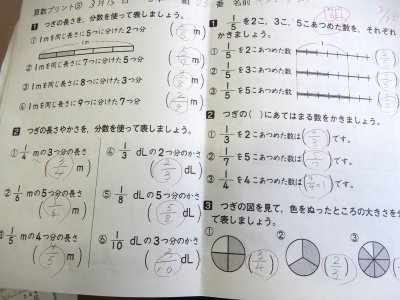 算数プリント⑤ 3月15日
1 つぎの長さを、分数を使って表しましょう。
1m
① 1mを同じ長さに5つに分けた2つ分 m
② 1mを同じ長さに7つに分けた5つ分 m
③ 1mを同じ長さに8つに分けた3つ分 m
④ 1mを同じ長さに9つに分けた7つ分 m
2 つぎの長さやかさを、分数を使って表しましょう。
① 1/4 mの3つ分の長さ ( 3/4 ) m
② 1/6 mの5つ分の長さ m
③ 1/5 mの4つ分の長さ m
④ 1/3 dLの2つ分のかさ ( 2/3 ) dL
⑤ 1/8 dLの5つ分のかさ ( 5/8 ) dL
⑥ 1/10 dLの3つ分のかさ ( 3/10 ) dL
番 名前
1 1/5 を2こ、3こ、5こあつめた数を、それぞれ
かきましょう。
① 1/5 を2こあつめた数
② 1/5 を3こあつめた数
③ 1/5 を5こあつめた数
2 つぎの( )にあてはまる数をかきましょう。
① 1/3 を2こあつめた数は ( 2/3 ) です。
② 1/7 を5こあつめた数は ( 5/7 ) です。
③ 1/4 を4こあつめた数は ( 4/4=1 ) です。
3 つぎの図を見て、色をぬったところの大きさを分
て表しましょう。
① ( 3/4 )
② ( 2/3 )
③